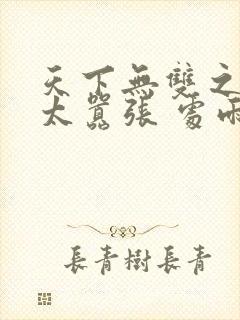 天下無雙之
太囂張 處雨
長青樹長青